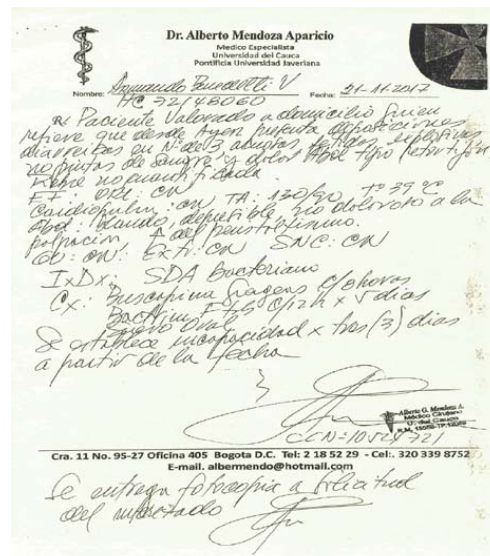 Dr. Alberto Mendoza Aparicio
Medico Especialista
Universidad del Cauca
Pontificia Universidad Javeriana
Nombre: Armando Benedetti V Fecha: 21-11-2017
HC 72148060
R/ Paciente Valorado a domicilio quien
refiere que desde Ayer presenta deposiciones
diarreicas en N° de 3 explosivas
no pintas de sangre y dolor Abd tipo retortijón
Fiebre no cuantificada
EF: ORL: CN
Cardiopulm: CN TA: 130/90 T° 39 °C
Abd: blando, depresible no doloroso a la
palpación ↑ del peristaltismo.
GU: CN Extr: CN SNC: CN
IxDx: SDA bacteriano
Cx: Buscapina Grageas c/8 horas
Bactrim F c/12h x 5 dias
Suero Oral
Se establece incapacidad x tres (3) dias
a partir de la fecha
Alberto G. Mendoza A.
Médico Cirujano
U. del Cauca
CC N=10524721
Cra. 11 No. 95-27 Oficina 405 Bogota D.C. Tel: 2 18 52 29 - Cel:. 320 339 8752
E-mail. albermendo@hotmail.com
Se entrega fotocopia a solicitud
del interesado